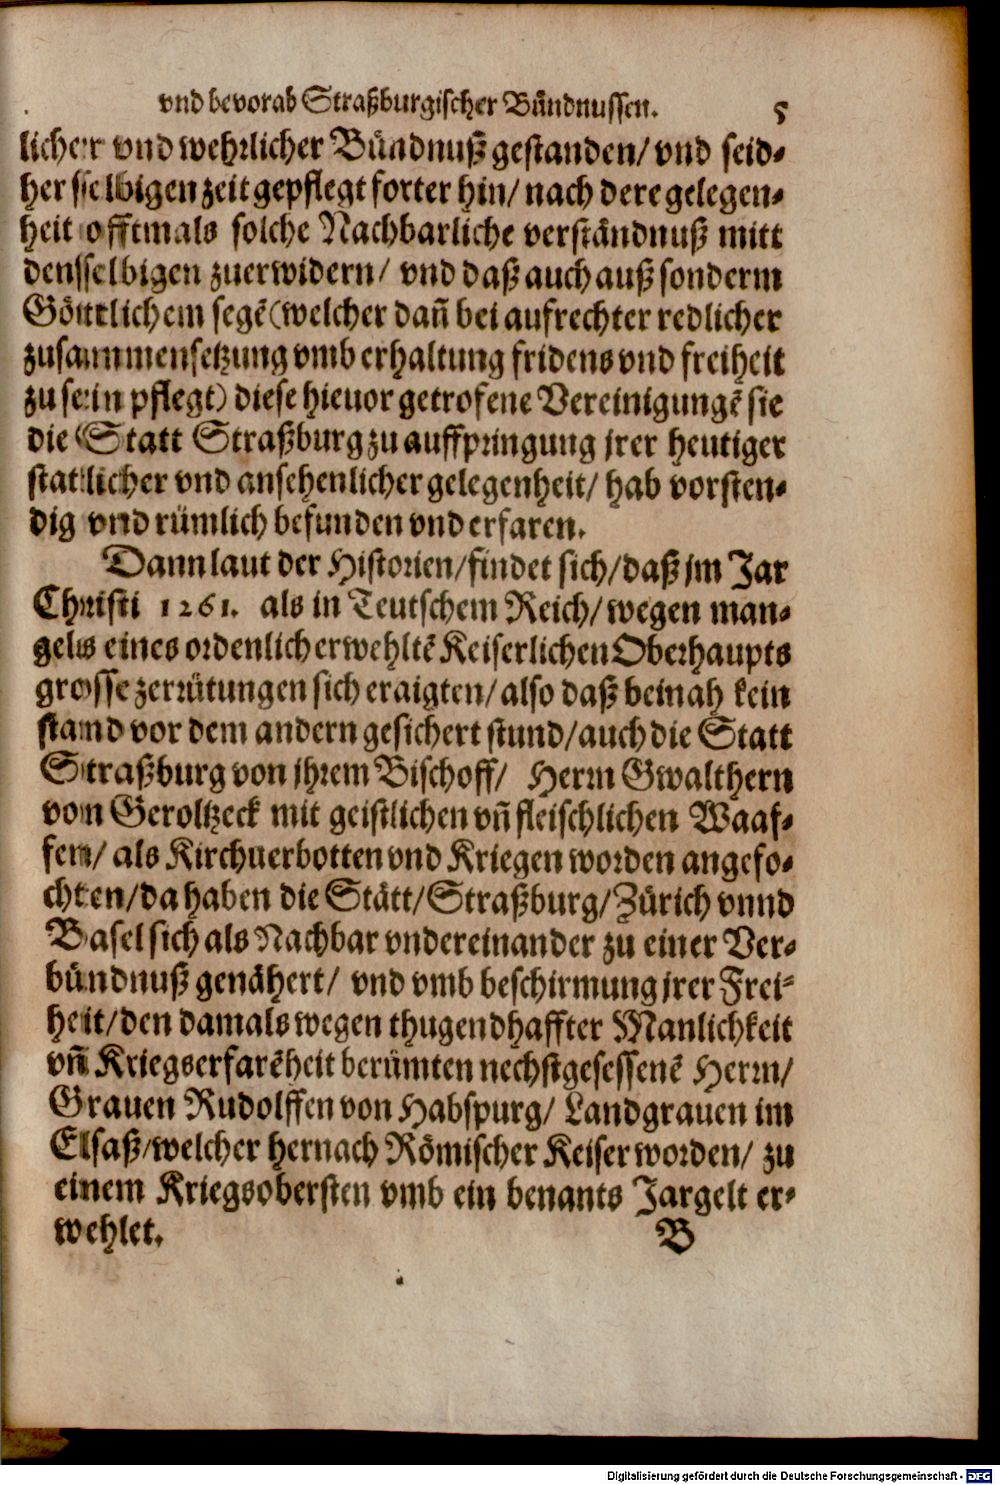 vnd bevorab Straßburgischer Bündnussen. 5
licher vnd wehrlicher Bündnuß gestanden/ vnd seid⸗
her sselbigen zeit gepflegt forter hin/ nach dere gelegen⸗
heit offtmals solche Nachbarliche verständnuß mitt
densselbigen zuerwidern/ vnd daß auch auß sonderm
Göttlichem segē (welcher dañ bei aufrechter redlicher
zusammensetzung vmb erhaltung fridens vnd freiheit
zu sein pflegt) diese hieuor getrofene Vereinigungē sie
die Statt Straßburg zu auffpringung jrer heutiger
stattlicher vnd ansehenlicher gelegenheit/ hab vorsten⸗
dig vnd rümlich befunden vnd erfaren.
Dann laut der Historien/ findet sich/ daß jm Jar
Christi 1261. als in Teutschem Reich/ wegen man⸗
gels eines ordenlich erwehltē Keiserlichen Oberhaupts
grosse zerrütungen sich eraigten/ also daß beinah kein
stand vor dem andern gesichert stund/ auch die Statt
Straßburg von jhrem Bischoff/ Herrn Gwalthern
von Geroltzeck mit geistlichen vñ fleischlichen Waaf⸗
fen/ als Kirchuerbotten vnd Kriegen worden angefo⸗
chten/ da haben die Stätt/ Straßburg/ Zürich vnnd
Basel sich als Nachbar vndereinander zu einer Ver⸗
bündnuß genähert/ vnd vmb beschirmung jrer Frei⸗
heit/ den damals wegen thugendhaffter Manlichkeit
vñ Kriegserfarēheit berümten nechstgesessenē Herrn/
Grauen Rudolffen von Habspurg/ Landgrauen im
Elsaß/ welcher hernach Römischer Keiser worden/ zu
einem Kriegsobersten vmb ein benants Jargelt er⸗
wehlet. B
Digitalisierung gefördert durch die Deutsche Forschungsgemeinschaft - DFG